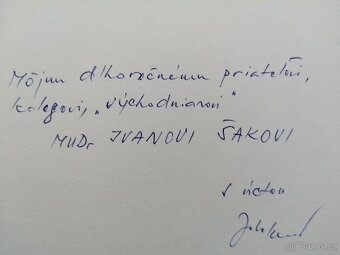 Môjmu dlhoročnému priateľovi,
kolegovi, „východniarovi"
MUDr IVANOVI ŠAKOVI
s úctou
Bazos.cz